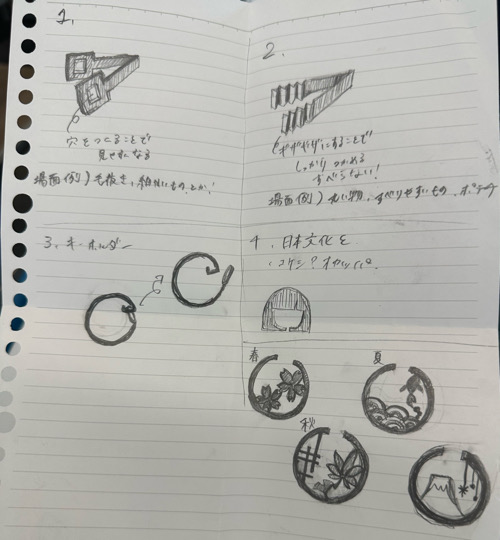 1.
穴をつくることで
見せれなる
場面(例)毛抜き、細かいもの、とか!
2.
ギザギザにすることで
しっかりつかめる
すべらない!
場面(例)丸い物、すべりやすいもの、ポテチ
3、キーホルダー
4、日本文化を
・コケシ?オカッパ。
春
夏
秋